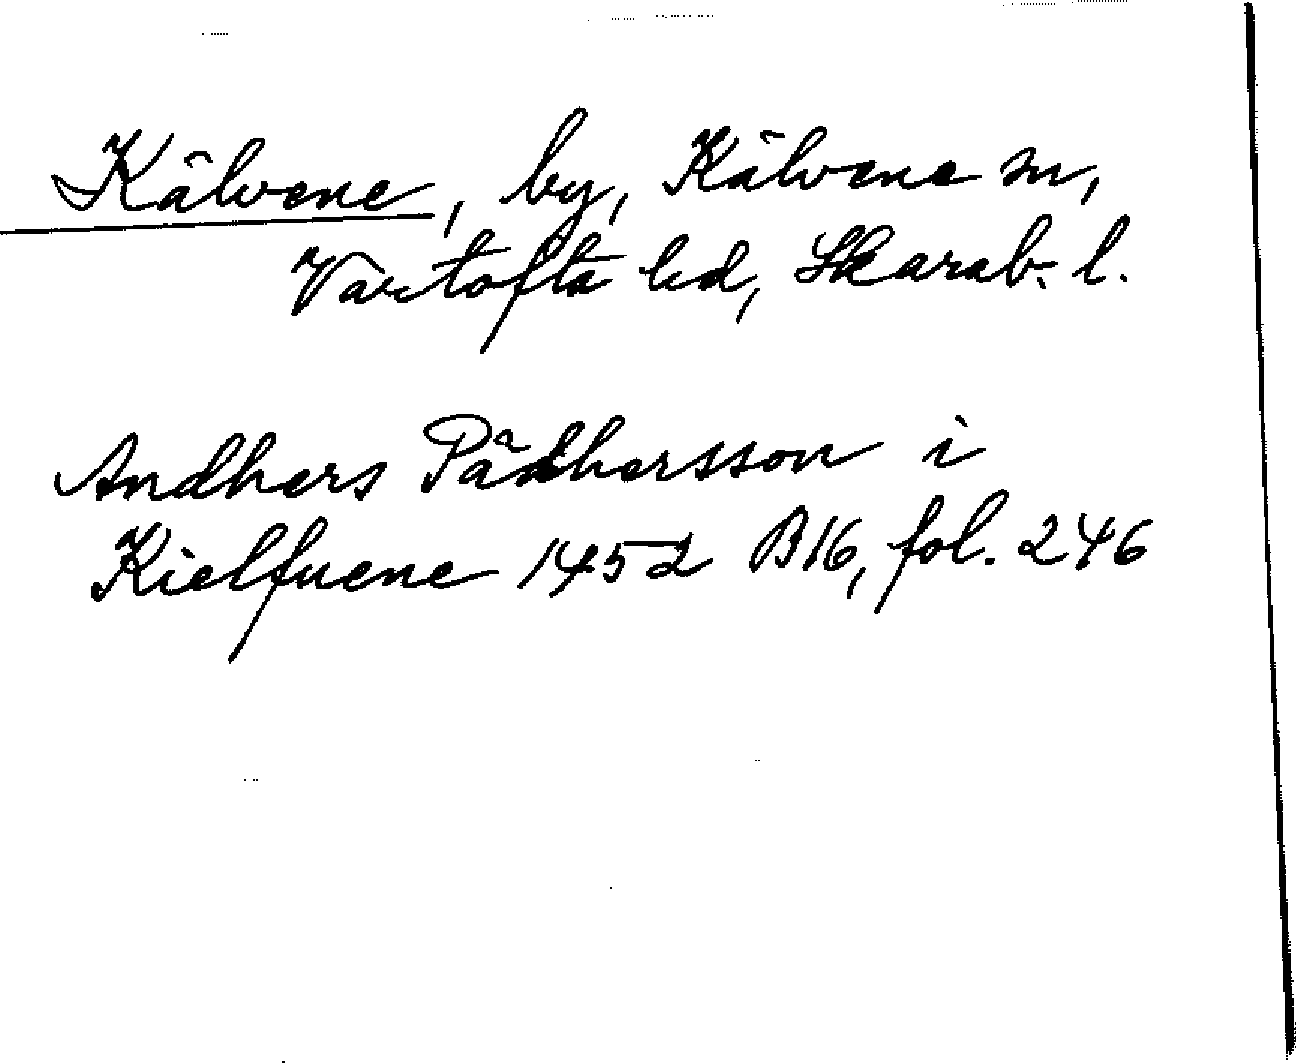 Kälvene, by, Kälvene sn,
Vartofta hd, Skarab. l.
Andhers Pädhersson i
Kielfuene 1452 B16, fol. 246